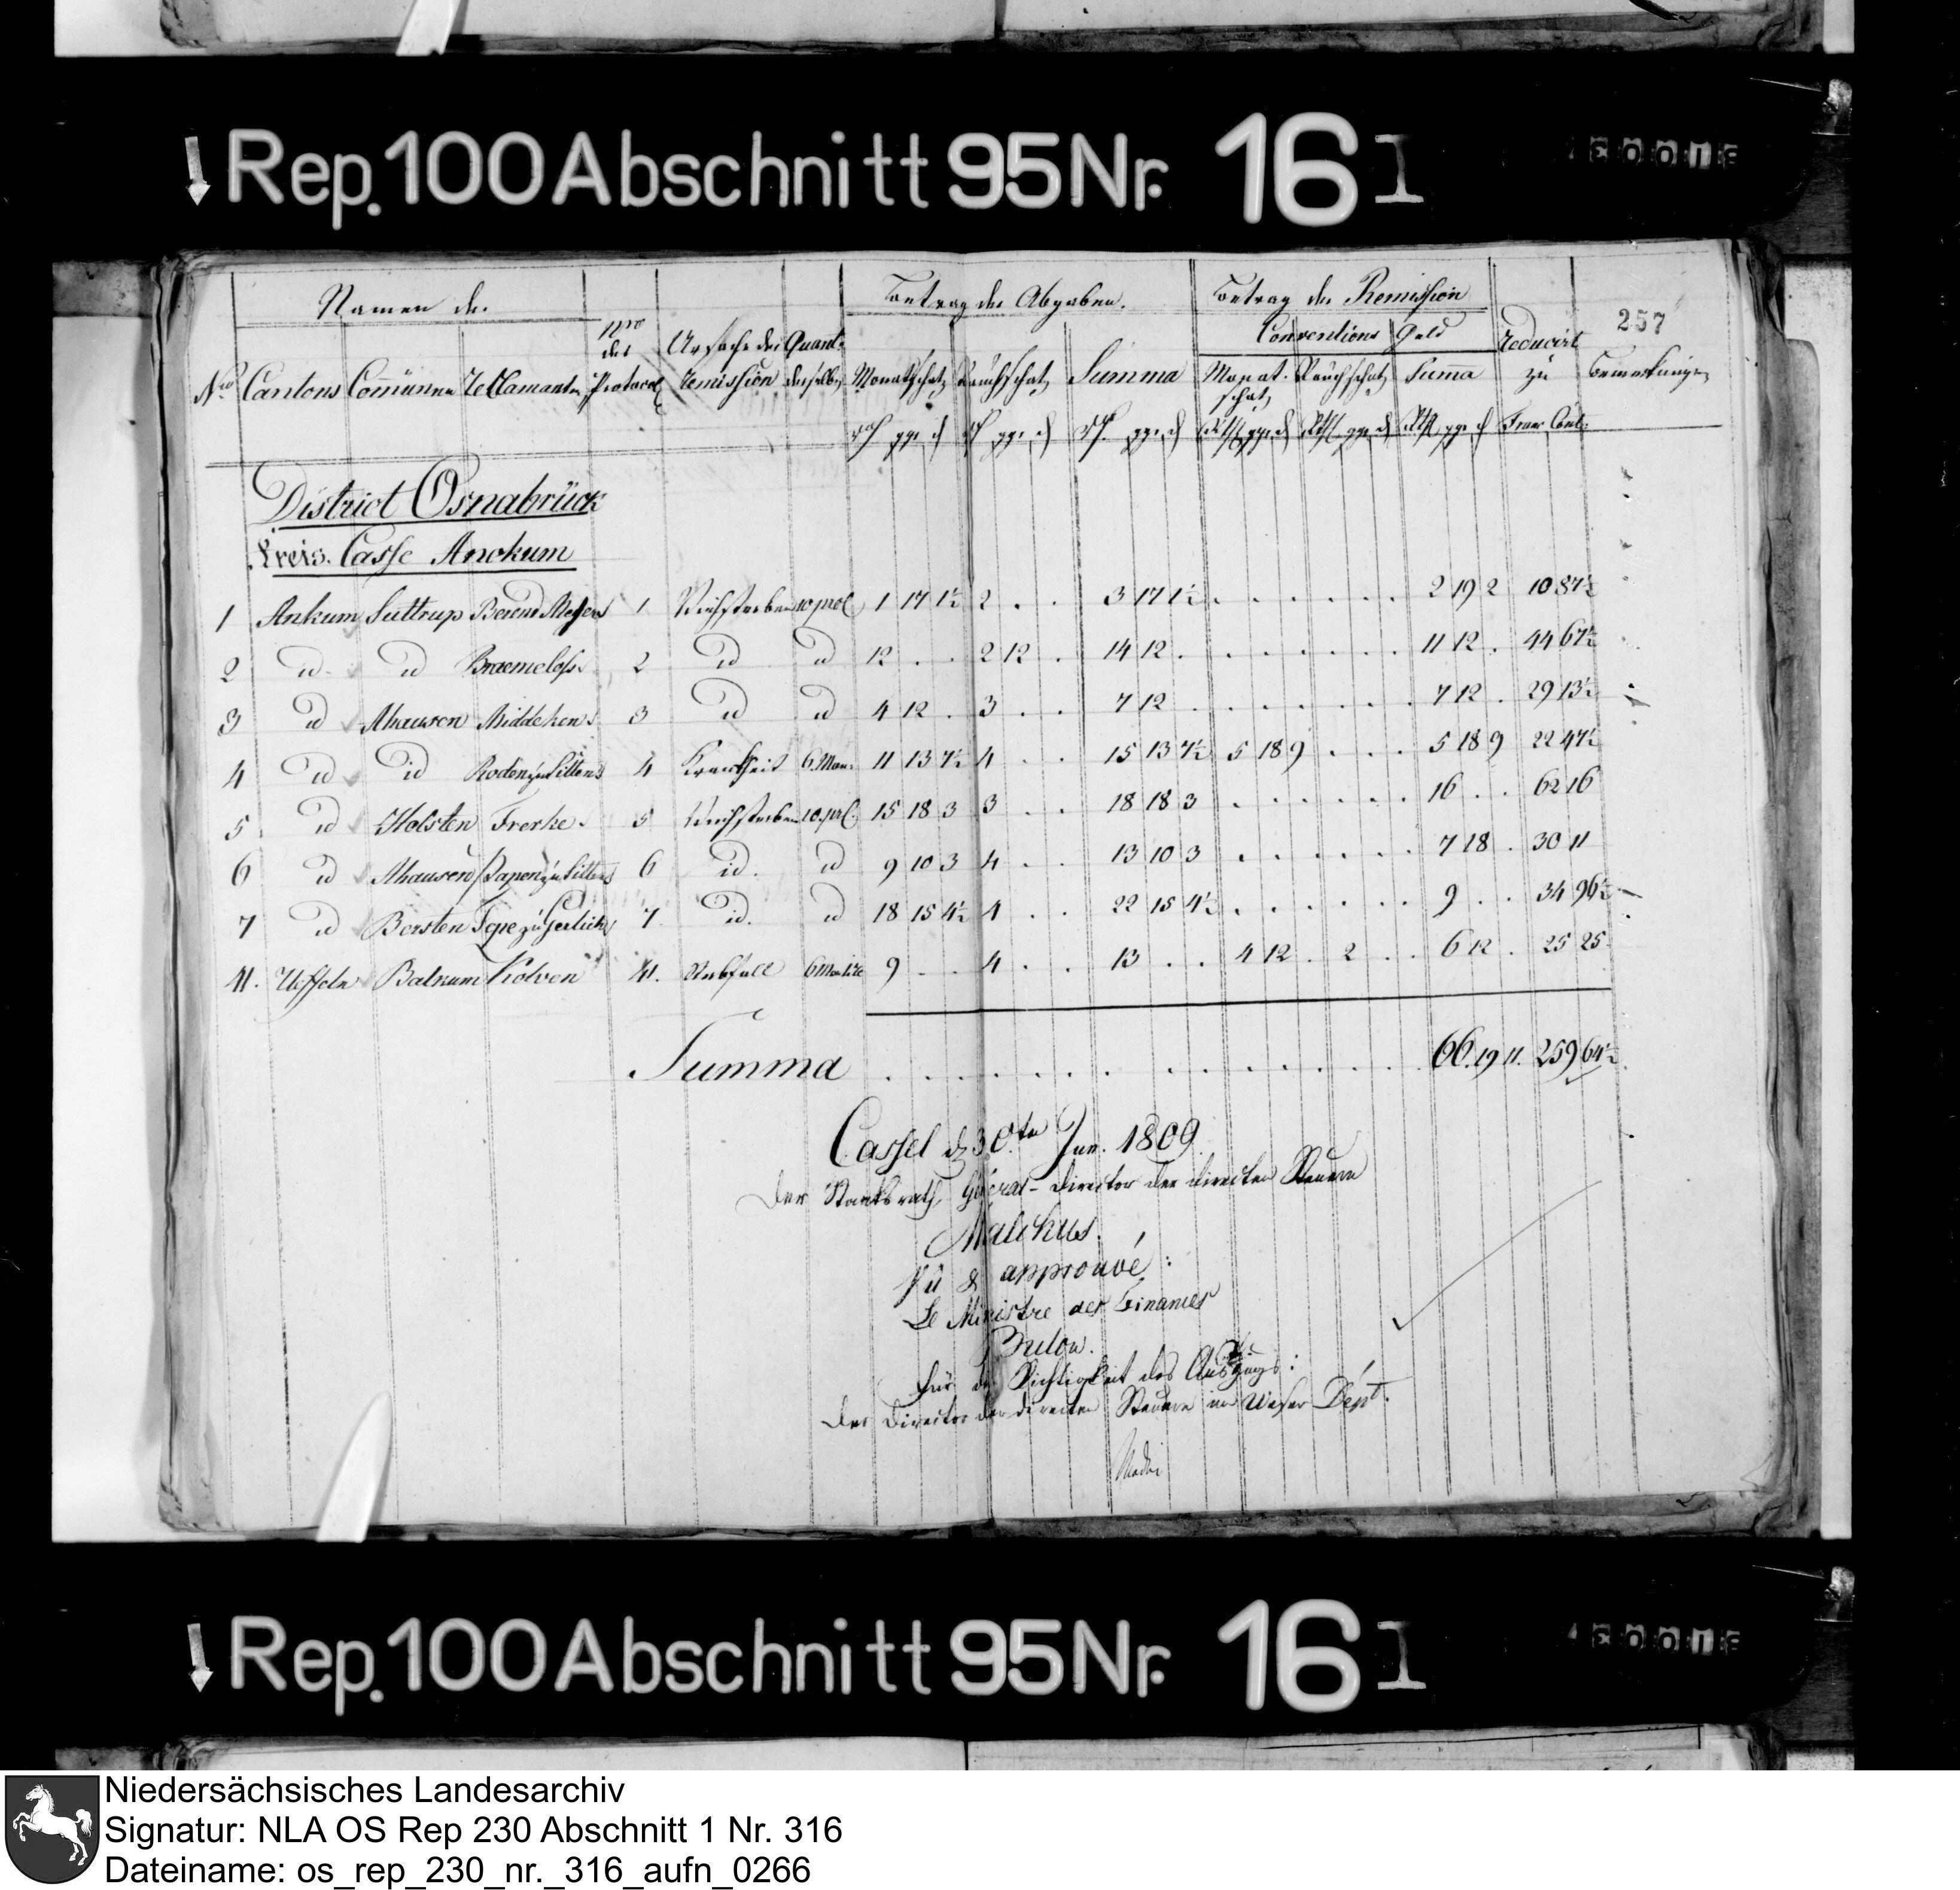 Rep. 100 Abschnitt 95 Nr. 16 I
257
Namen der Betrag der Abgaben. Betrag der Remission
Conventions Geld
Nro Cantons Comünen Reclamanten Nro des Protocol Ursache der remission Quant. derselben Monatschatz Rauchschatz Summa Monatschatz Rauchschatz Suma reducirt zu Bemerkungen
Rth ggr d Rth ggr d Rth ggr d Rthl ggr d Rthl ggr d Rthl ggr d Franc Cent.
District Osnabrück
Kreis. Casse Anckum
1 Ankum Suttrup Berend Meyer 1 Viehsterben 10 prC 1 17 1½ 2 . . 3 17 1½ . . . . . . 2 19 2 10 87½
2 id id Braemeloh. 2 id id 12 . . 2 12 . 14 12 . . . . . . . 11 12 . 44 67½
3 id Ahausen Middeken. 3 id id 4 12 . 3 . . 7 12 . . . . . . . 7 12 . 29 13½
4 id id Roden zu Sitters 4 Krankheit 6 Mon. 11 13 7½ 4 . . 15 13 7½ 5 18 9 . . . 5 18 9 22 47½
5 id Holsten Frerke. 5 Viehsterben 10 prC. 15 18 3 3 . . 18 18 3 . . . . . . 16 . . 62 16
6 id Ahausen Papen zu Sitters 6 id. id 9 10 3 4 . . 13 10 3 . . . . . . 7 18 . 30 11
7 id Bersten Tepe zu 7 id. id 18 15 4½ 4 . . 22 15 4½ . . . . . . 9 . . 34 96½
41. Ueffeln Balkum Kolven 41. 6 Monate 9 . . 4 . . 13 . . 4 12 . 2 . . 6 12 . 25 25
Summa . . . . . . . . . . . . . . . 66. 19 11. 259 64½
Cassel d 30.ten Jun. 1809
Der Staatsrath, General-Director der directen Steuern
Malchus.
Vu & approuvé:
Le Ministre des Finances
Bulow.
Für die Richtigkeit des Auszugs:
Der Director der directen Steuern im Weser Dépt.
Rep. 100 Abschnitt 95 Nr. 16 I
Niedersächsisches Landesarchiv
Signatur: NLA OS Rep 230 Abschnitt 1 Nr. 316
Dateiname: os_rep_230_nr._316_aufn_0266